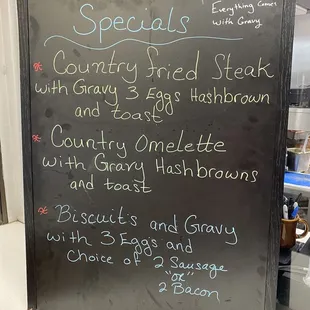 Specials
Everything Comes
With Gravy
* Country fried Steak
with Gravy 3 Eggs Hashbrown
and toast
* Country Omelette
with Gravy Hashbrowns
and toast
* Biscuits and Gravy
with 3 Eggs and
Choice of 2 Sausage
"or"
2 Bacon